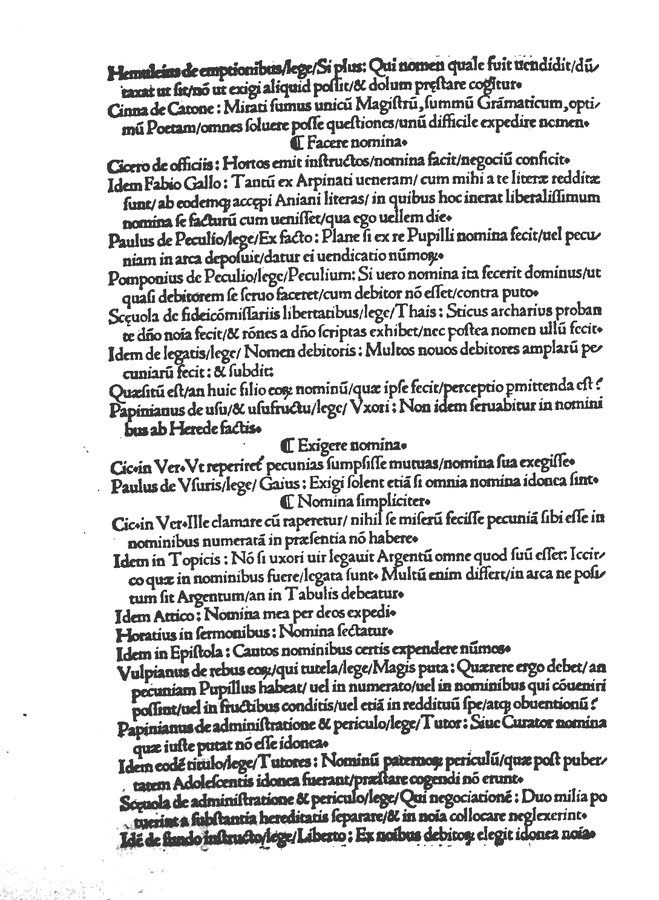 Hemuleius de emptionibus/lege/Si plus: Qui nomen quale fuit uendidit/dũ/
taxat ut sit/nõ ut exigi aliquid possit/& dolum pręstare cogitur.
Cinna de Catone: Mirati sumus unicũ Magistrũ, summũ Grãmaticum, opti/
mũ Poetam/omnes soluere posse questiones/unũ difficile expedire nomen.
¶ Facere nomina.
Cicero de officiis: Hortos emit instructos/nomina facit/negociũ conficit.
Idem Fabio Gallo: Tantũ ex Arpinati ueneram/ cum mihi a te literæ redditæ
sunt/ ab eodemqꝫ accępi Aniani literas/ in quibus hoc inerat liberalissimum
nomina se facturũ cum uenisset/qua ego uellem die.
Paulus de Peculio/lege/Ex facto: Plane si ex re Pupilli nomina fecit/uel pecu/
niam in arca deposuit/datur ei uendicatio nũmoꝝ.
Pomponius de Peculio/lege/Peculium: Si uero nomina ita fecerit dominus/ut
quasi debitorem se seruo faceret/cum debitor nõ esset/contra puto.
Scęuola de fideicõmissariis libertatibus/lege/Thais: Sticus archarius proban
te dño noĩa fecit/& rõnes a dño scriptas exhibet/nec postea nomen ullũ fecit.
Idem de legatis/lege/ Nomen debitoris: Multos nouos debitores amplarũ pe/
cuniarũ fecit: & subdit:
Quæsitũ est/an huic filio eoꝝ nominũ/quæ ipse fecit/perceptio ꝑmittenda est?
Papinianus de usu/& usufructu/lege/ Vxori: Non idem seruabitur in nomini
bus ab Herede factis.
¶ Exigere nomina.
Cic.in Ver.Vt reperiret᷑ pecunias sumpsisse mutuas/nomina sua exegisse.
Paulus de Vsuris/lege/ Gaius: Exigi solent etiã si omnia nomina idonea sint.
¶ Nomina simpliciter.
Cic.in Ver.Ille clamare cũ raperetur/ nihil se miserũ fecisse pecuniã sibi esse in
nominibus numeratã in præsentia nõ habere.
Idem in Topicis: Nõ si uxori uir legauit Argentũ omne quod suũ esset: Iccir/
co quæ in nominibus fuere/legata sunt. Multũ enim differt/in arca ne posi/
tum sit Argentum/an in Tabulis debeatur.
Idem Attico: Nomina mea per deos expedi.
Horatius in sermonibus: Nomina sectatur.
Idem in Epistola: Cautos nominibus certis expendere nũmos.
Vulpianus de rebus eoꝝ/qui tutela/lege/Magis puta: Quærere ergo debet/ an
pecuniam Pupillus habeat/ uel in numerato/uel in nominibus qui cõueniri
possint/uel in fructibus conditis/uel etiã in reddituũ spe/atqꝫ obuentionũ?
Papinianus de administratione & periculo/lege/Tutor: Siue Curator nomina
quæ iuste putat nõ esse idonea.
Idem eodẽ titulo/lege/Tutores: Nominũ paternoꝝ periculũ/quæ post puber/
tatem Adolescentis idonea fuerant/præstare cogendi nõ erunt.
Scęuola de administratione & periculo/lege/Qui negociationẽ: Duo milia po
tuerint a substantia hereditatis separare/& in noĩa collocare neglexerint.
Idẽ de fundo instructo/lege/Liberto: Ex noĩbus debitoꝝ elegit idonea noĩa.